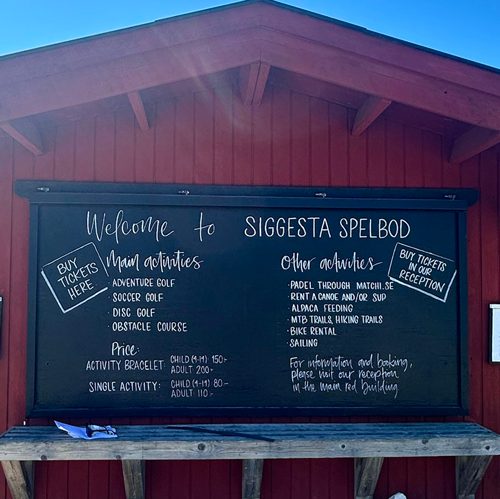 Welcome to SIGGESTA SPELBOD
BUY
TICKETS
HERE
Main activities
· ADVENTURE GOLF
· SOCCER GOLF
· DISC GOLF
· OBSTACLE COURSE
Price:
ACTIVITY BRACELET: CHILD (4-14): 150:-
ADULT: 200:-
SINGLE ACTIVITY: CHILD (4-14) 80:-
ADULT: 110:-
Other activities
· PADEL THROUGH MATCHI.SE
· RENT A CANOE AND/OR SUP
· ALPACA FEEDING
· MTB TRAILS, HIKING TRAILS
· BIKE RENTAL
· SAILING
For information and booking,
please visit our reception
in the main red building
BUY TICKETS
IN OUR
RECEPTION